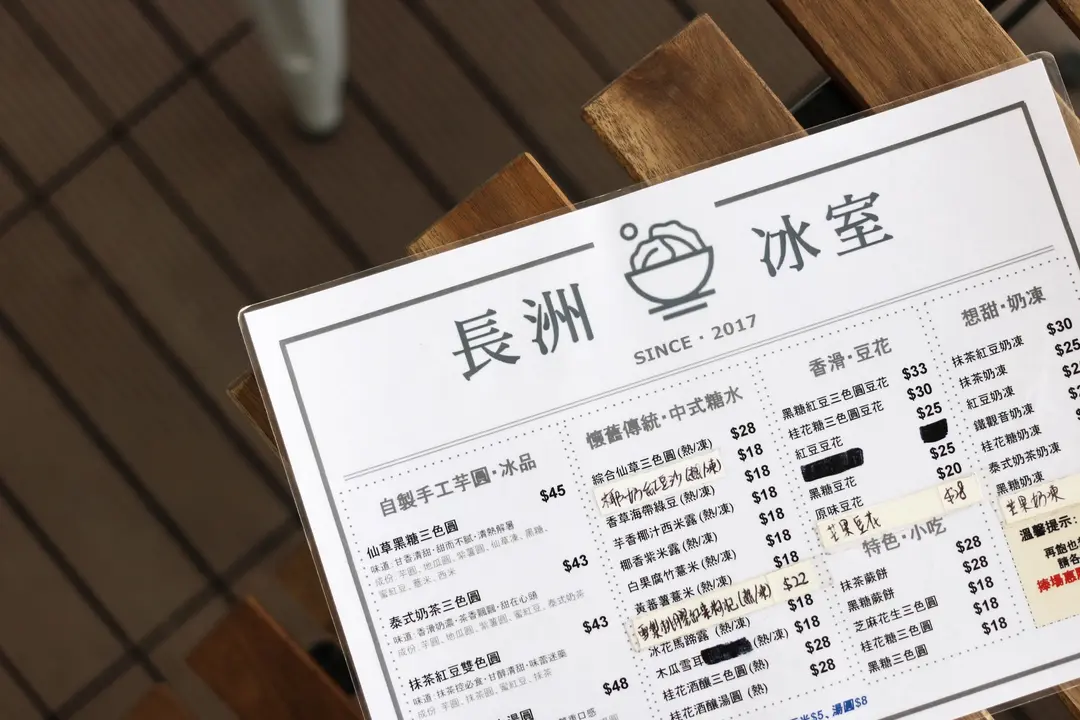 長洲 冰室
SINCE · 2017
自製手工芋圓·冰品
仙草黑糖三色圓 $45
味道: 甘香清甜·甜而不膩·清熱解暑
成份: 芋圓、地瓜圓、紫薯圓、仙草凍、黑糖、
蜜紅豆、薏米、西米
泰式奶茶三色圓 $43
味道: 香滑奶濃·茶香飄飄·甜在心頭
成份: 芋圓、地瓜圓、紫薯圓、蜜紅豆、泰式奶茶
抹茶紅豆雙色圓 $43
味道: 抹茶控必食·甘醇清甜·味蕾迷藥
成份: 芋圓、抹茶圓、蜜紅豆、抹茶
$48
懷舊傳統·中式糖水
綜合仙草三色圓(熱/凍) $28
椰奶紅豆沙(熱/凍) $18
香草海帶綠豆(熱/凍) $18
芋香椰汁西米露(熱/凍) $18
椰香紫米露(熱/凍) $18
白果腐竹薏米(熱/凍) $18
黃蕃薯薏米(熱/凍) $18
$22
冰花馬蹄露(熱/凍) $18
木瓜雪耳 (熱/凍) $18
桂花酒釀三色圓(熱) $28
桂花酒釀湯圓(熱) $28
$5、湯圓$8
香滑·豆花
黑糖紅豆三色圓豆花 $33
桂花糖三色圓豆花 $30
紅豆豆花 $25
黑糖豆花 $25
原味豆花 $20
芒果豆花 $38
特色·小吃
抹茶蕨餅 $28
黑糖蕨餅 $28
芝麻花生三色圓 $18
桂花糖三色圓 $18
黑糖三色圓 $18
想甜·奶凍
抹茶紅豆奶凍 $30
抹茶奶凍 $25
紅豆奶凍
鐵觀音奶凍
桂花糖奶凍
泰式奶茶奶凍
黑糖奶凍
芒果奶凍
溫馨提示:
再飽也
請各
捧場惠